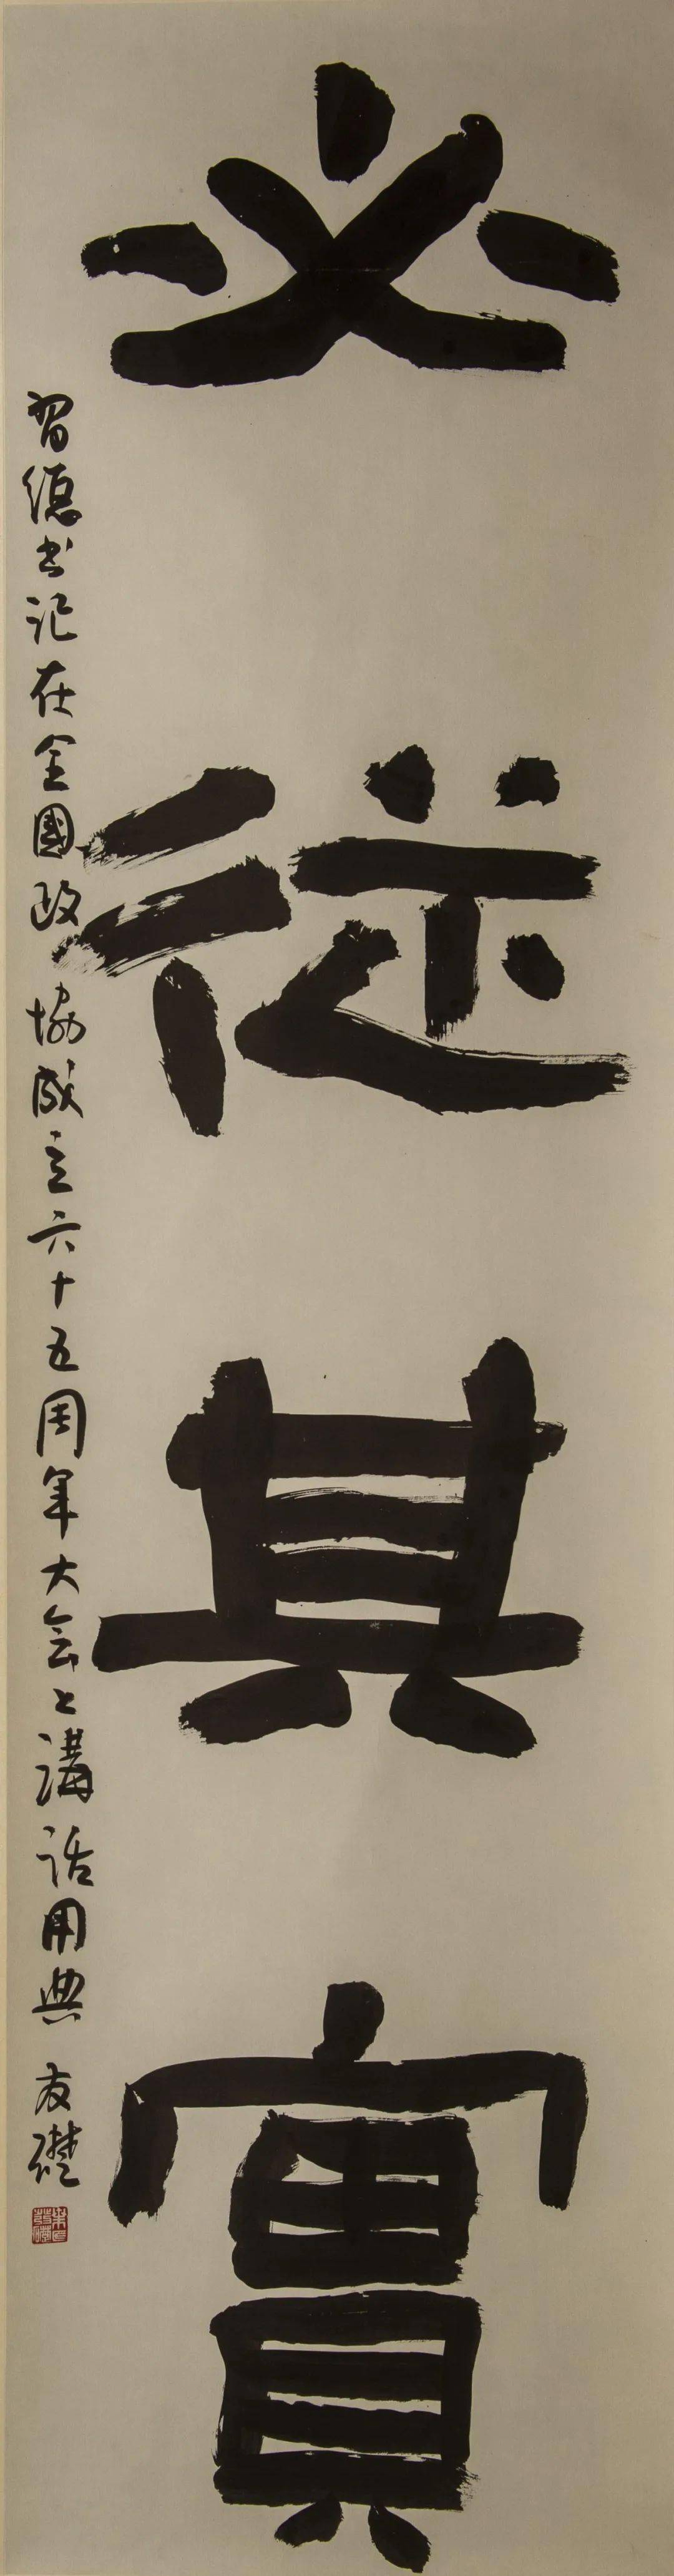 必從其實
習總书记在全國政協成立六十五周年大会上講話用典 友礎